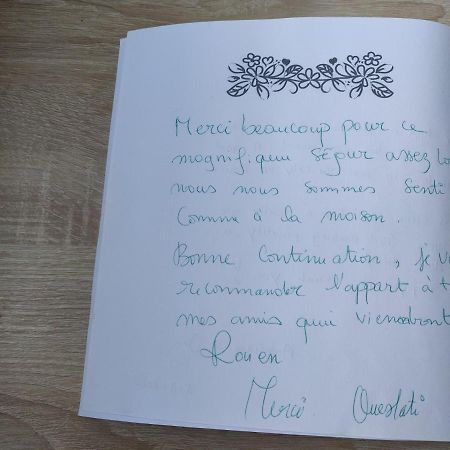 Merci beaucoup pour ce
magnifiquu séjour assez lo
nous nous sommes senti
comme à la maison.
Bonne continuation, je v
recommander l'appart à t
mes amis qui viendront
Rouen
Merci. Oueslati